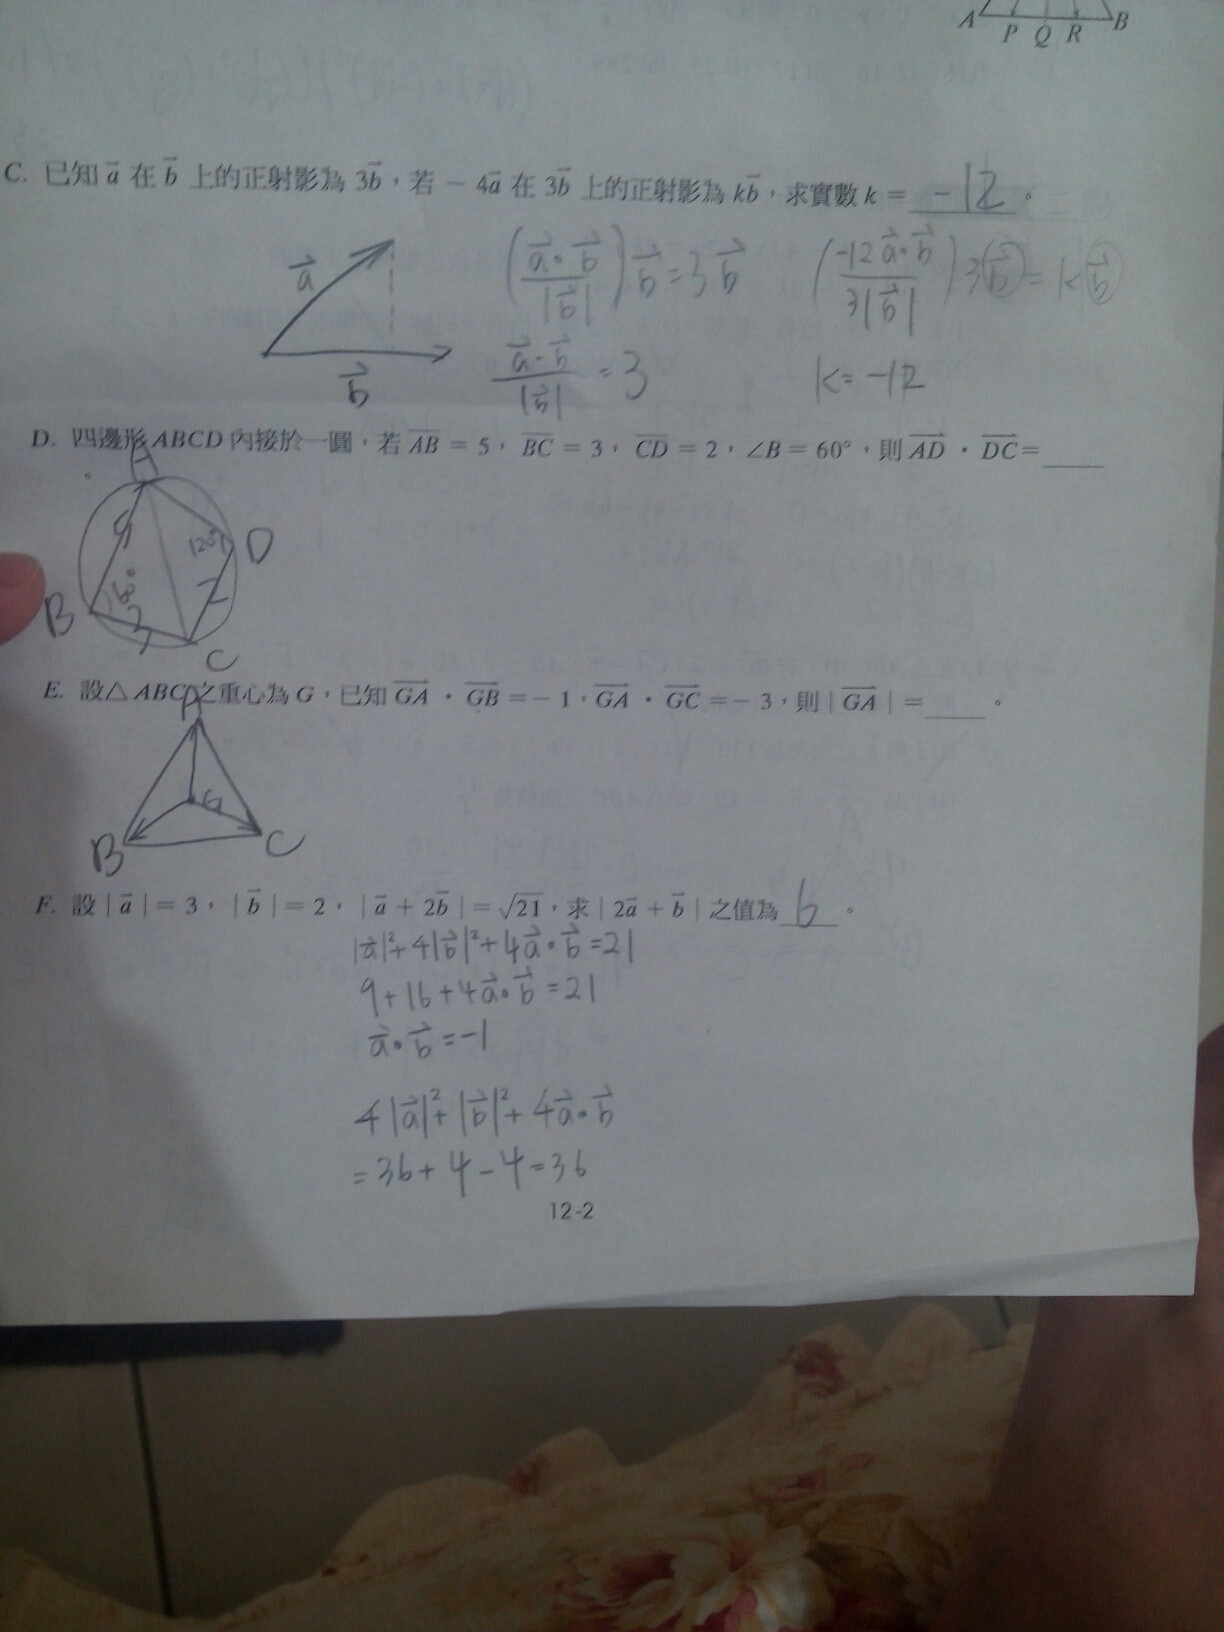 A P Q R B
C. 已知 a⃗ 在 b⃗ 上的正射影為 3b⃗，若 − 4a⃗ 在 3b⃗ 上的正射影為 kb⃗，求實數 k = -12 。
a⃗ (a⃗·b⃗/|b⃗|)b⃗=3b⃗ (-12a⃗·b⃗/3|b⃗|)3b⃗=kb⃗
b⃗ a⃗·b⃗/|b⃗|=3 k=-12
D. 四邊形 ABCD 內接於一圓，若 AB = 5，BC = 3，CD = 2，∠B = 60°，則 AD · DC= ____
。
A
5 120° D
B 60° 2
3
C
E. 設△ABC 之重心為 G，已知 GA · GB = − 1，GA · GC = − 3，則 | GA | = ____ 。
A
G
B C
F. 設 | a⃗ | = 3，| b⃗ | = 2，| a⃗ + 2b⃗ | = √21，求 | 2a⃗ + b⃗ | 之值為 6 。
|a⃗|²+4|b⃗|²+4a⃗·b⃗=21
9+16+4a⃗·b⃗=21
a⃗·b⃗=-1
4|a⃗|²+|b⃗|²+4a⃗·b⃗
=36+4-4=36
12-2